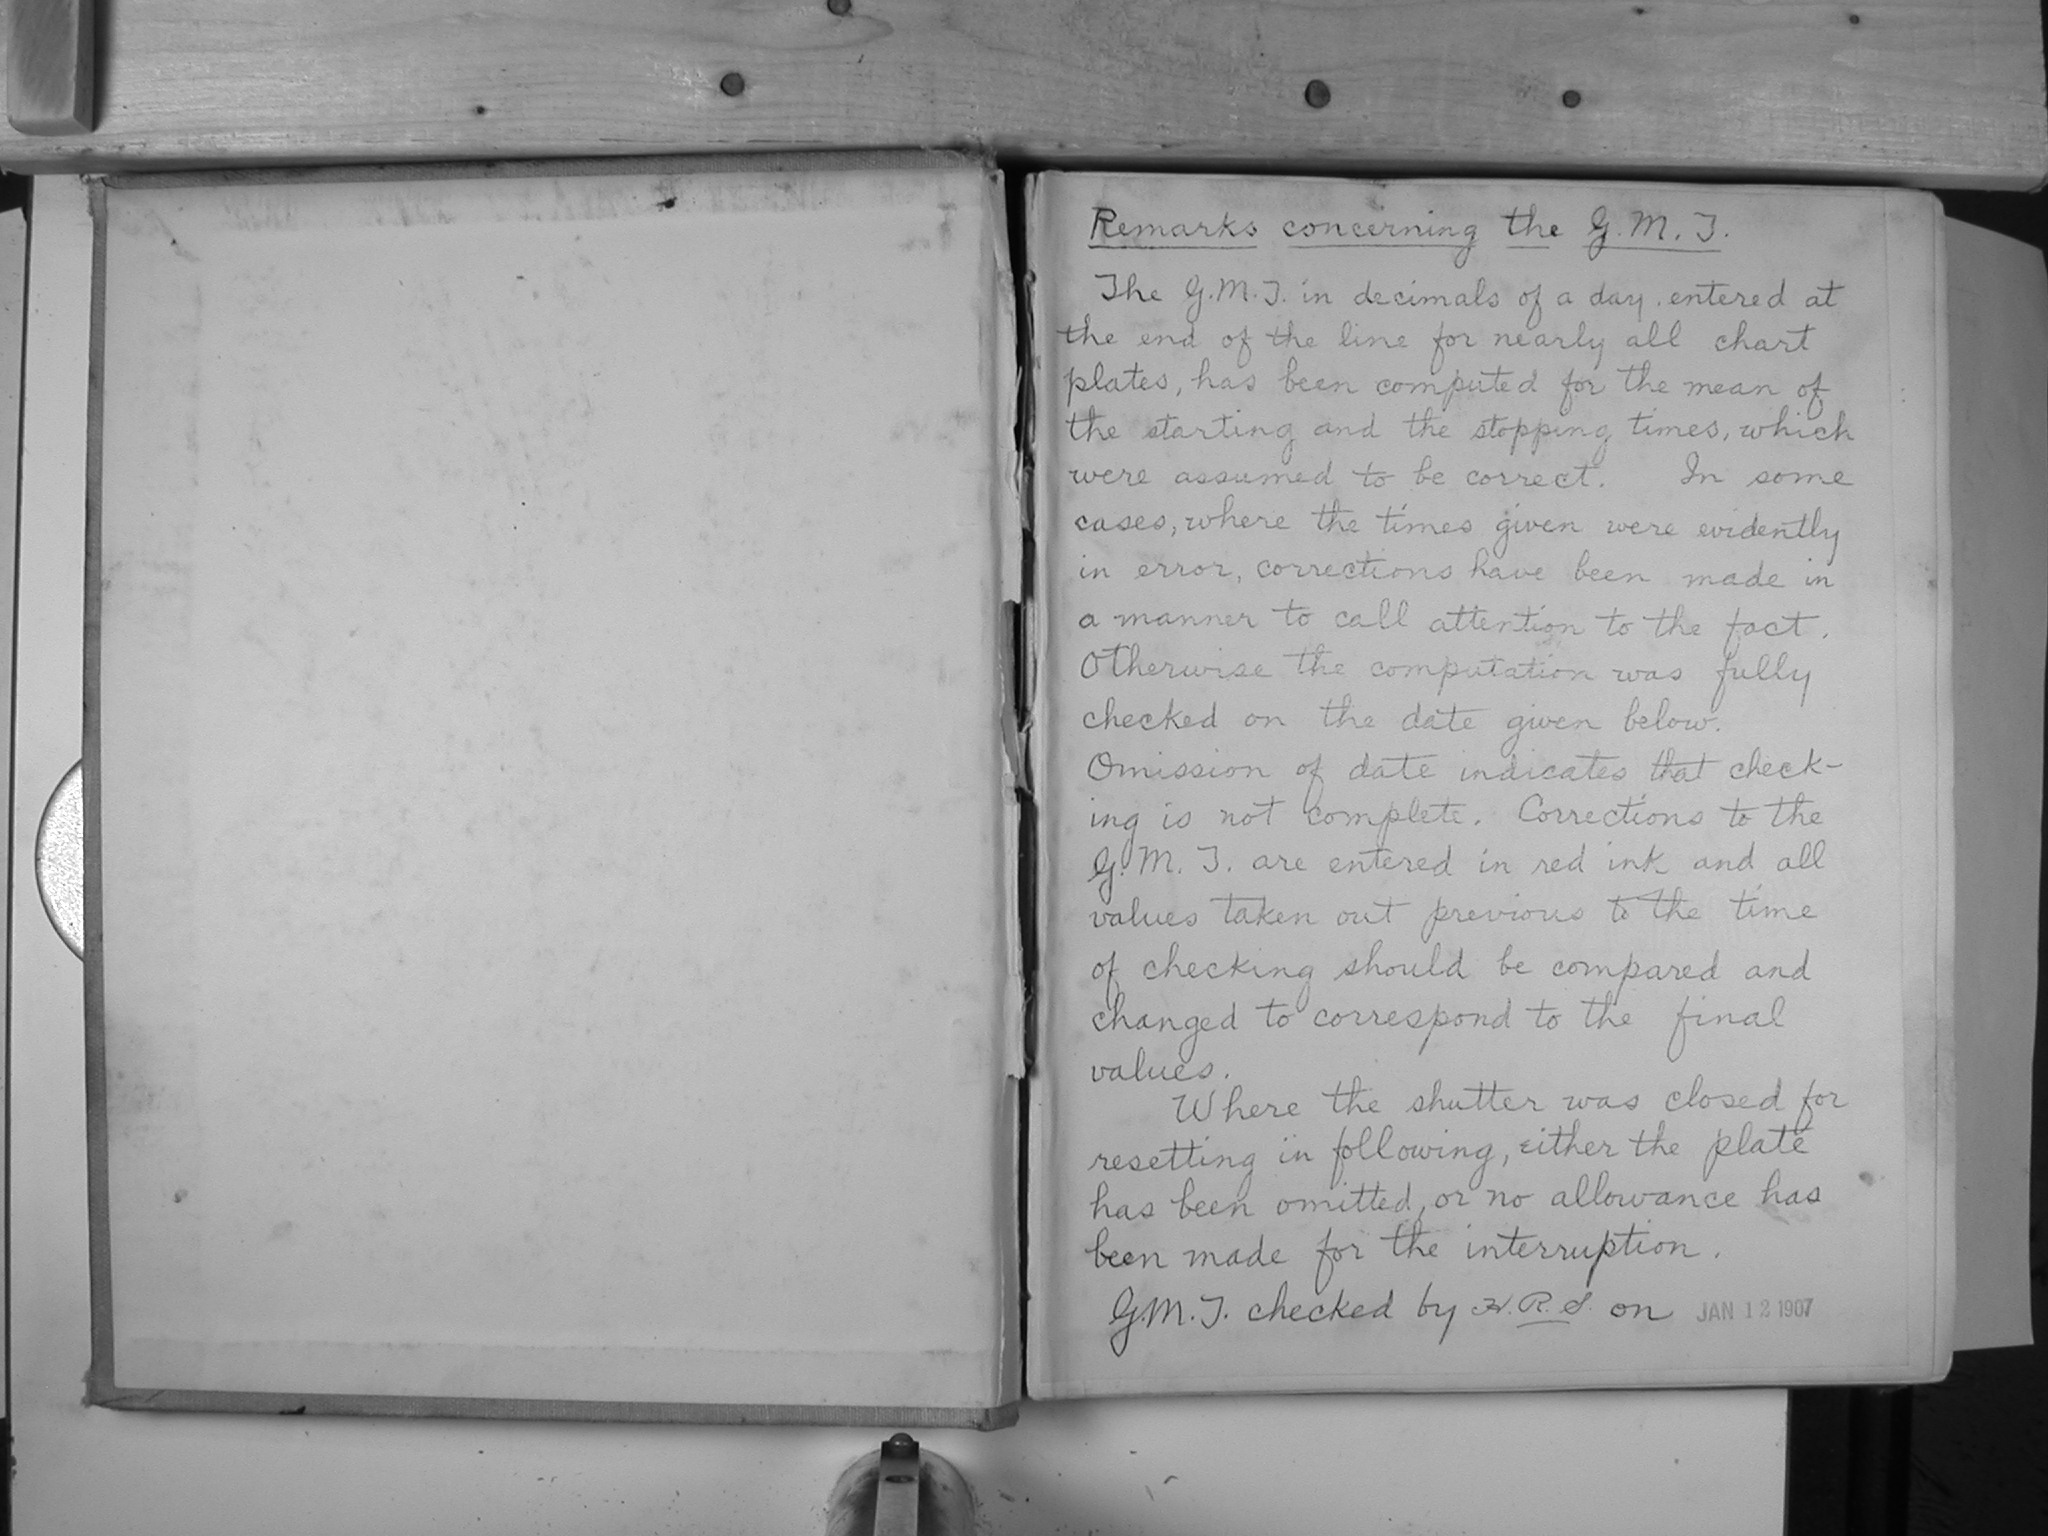 Remarks concerning the G.M.T.
The G.M.T. in decimals of a day, entered at
the end of the line for nearly all chart
plates, has been computed for the mean of
the starting and the stopping times, which
were assumed to be correct. In some
cases, where the times given were evidently
in error, corrections have been made in
a manner to call attention to the fact.
Otherwise the computation was fully
checked on the date given below.
Omission of date indicates that check-
ing is not complete. Corrections to the
G.M.T. are entered in red ink and all
values taken out previous to the time
of checking should be compared and
changed to correspond to the final
values.
Where the shutter was closed for
resetting in following, either the plate
has been omitted, or no allowance has
been made for the interruption.
G.M.T. checked by H.R.S. on JAN 12 1907